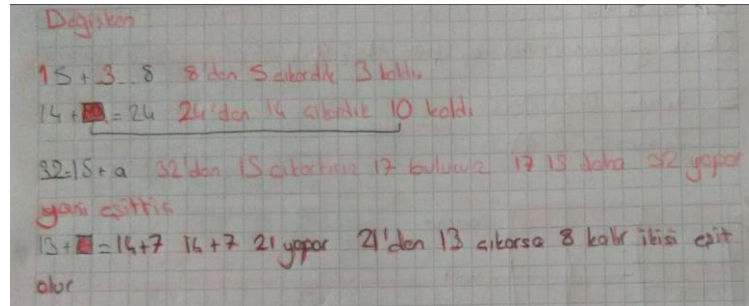 Değişken
15 + 3 _ 8 8'den 5 çıkardık 3 kaldı.
14 + = 24 24'den 14 çıkardık 10 kaldı
32=15+a 32'dan 15 çıkartınca 17 buluruz 17 15 daha 32 yapar
yani eşittir
13+ =14+7 14+7 21 yapar 21'den 13 çıkarsa 8 kalır ikisi eşit
olur